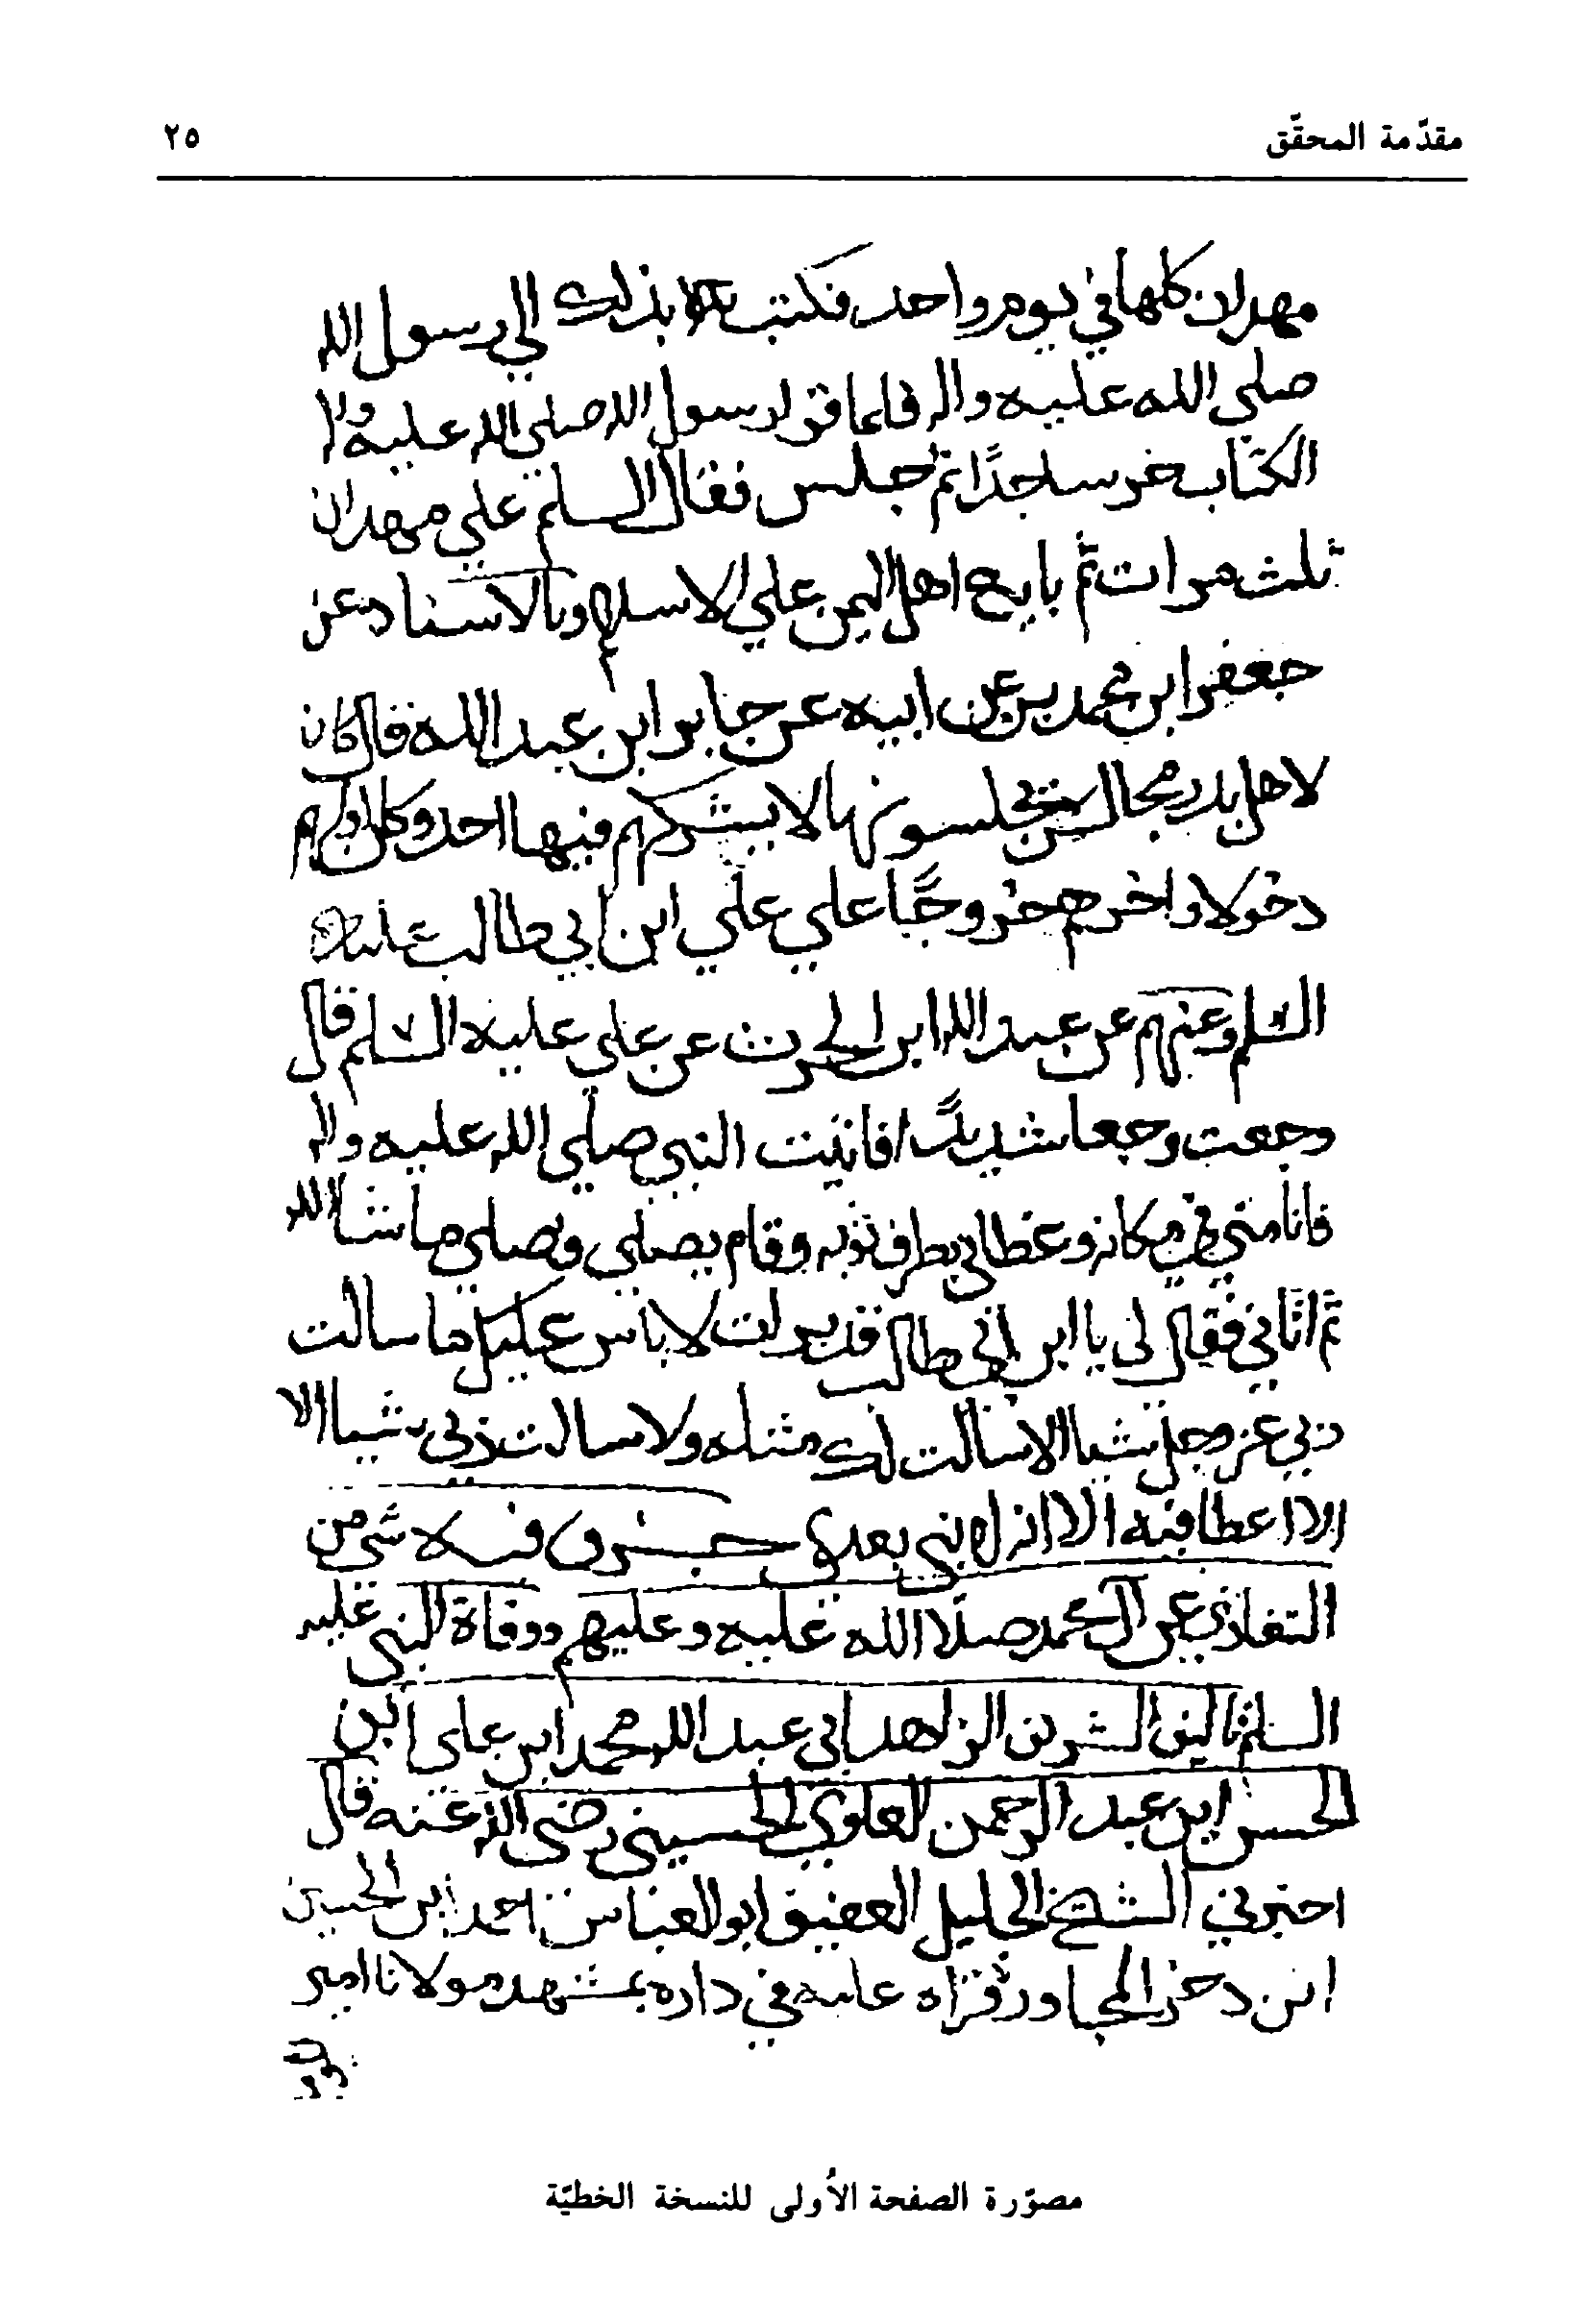 مقدّمة المحقّق ٢٥
مهدان كلها في يوم واحد فكتب بذلك الي رسول الله
صلى الله عليه واله فلما قرا رسول الله صلى الله عليه واله
الكتاب خر ساجدًا ثم جلس فقال السلم علي مهدان
ثلث مرات ثم بايع اهل اليمن علي الاسلام وبالاسناد عن
جعفر ابن محمد عن ابيه عن جابر ابن عبد الله قال كان
لاهل بدر مجالس يجلسونها لا يشركهم فيها احد وكان اولهم
دخولا واخرهم خروجًا علي علي ابن ابي طالب عليه
السلم وعنهم عن عبد الله ابن الحرث عن علي عليه السلم قال
وجعت وجعا شديدًا فاتيت النبي صلي الله عليه واله
فانامني في مكانه وغطاني بطرف ثوبه وقام يصلي وصلي ما شا الله
ثم اتاني فقال لى يا ابن ابي طالب قد برات لا باس عليك ما سالت
ربي عز وجل شيا الا سالت لك مثله ولا سالت ربي شيا الا
الا اعطانيه الا انه لا نبي بعدي جزو فيه شي من
التغازي عن آل محمد صلا الله عليه وعليهم ووفاة النبي عليه
السلم تاليف الشريف الزاهد ابي عبد الله محمد ابن على ابن
الحسن ابن عبد الرحمن العلوي الحسيني رضى الله عنه قال
اخبرني الشيخ الجليل العفيف ابو العباس احمد ابن الحسين
ابن دخر المجاور قراه عليه في داره بمشهد مولانا امير
مصوّرة الصفحة الأولى للنسخة الخطيّة